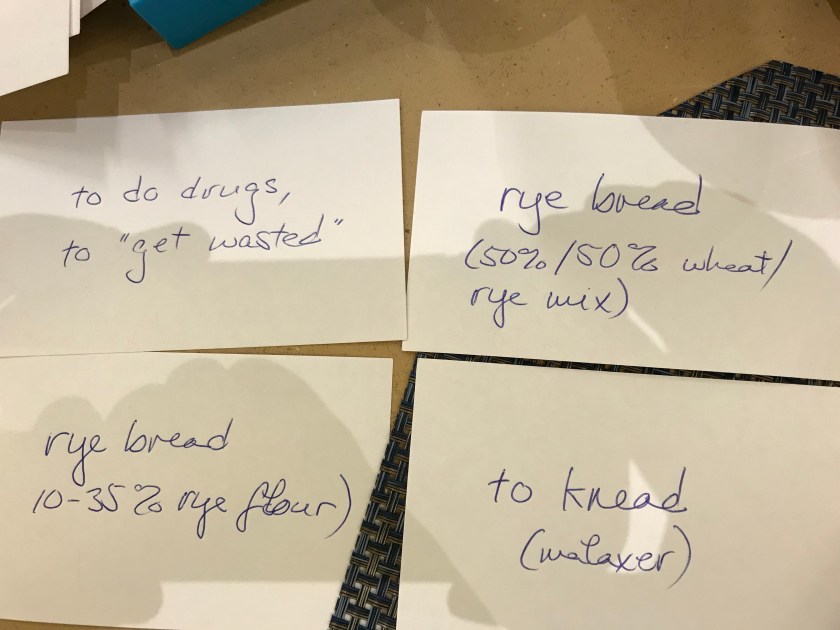 to do drugs,
to "get wasted"
rye bread
(50%/50% wheat/
rye mix)
rye bread
10-35% rye flour)
to knead
(malaxer)